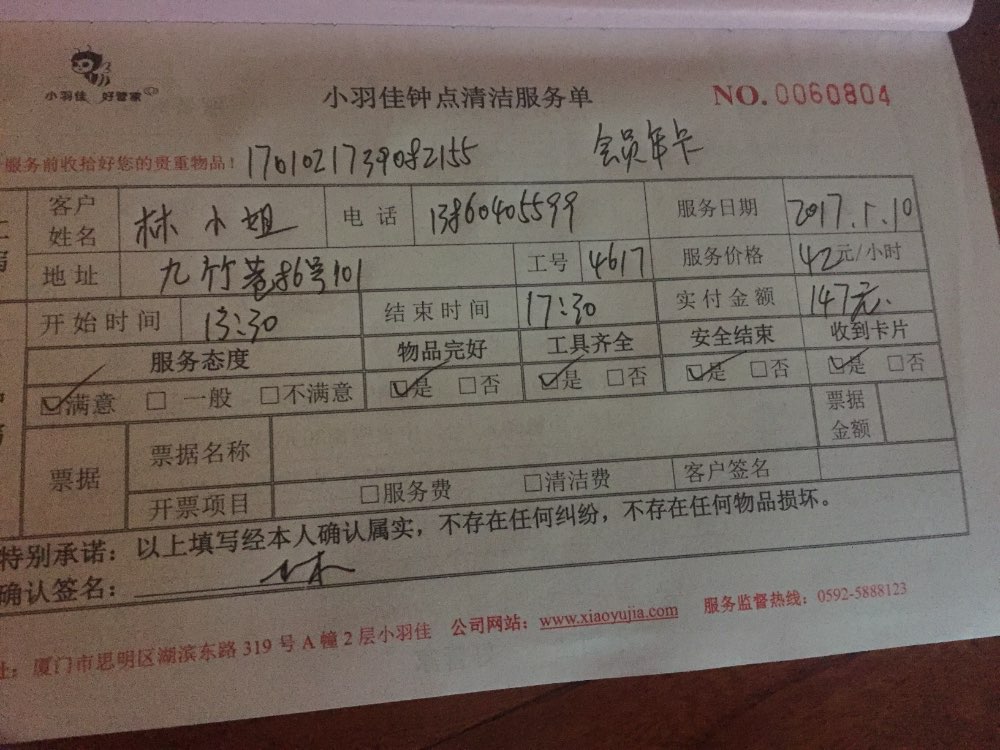 小羽佳 好管家
小羽佳钟点清洁服务单
NO. 0060804
服务前收拾好您的贵重物品！ 1701021739082155 会员年卡
客户姓名 林小姐 电话 13860405599 服务日期 2017.1.10
地址 九竹巷86号101 工号 4617 服务价格 42元/小时
开始时间 13:30 结束时间 17:30 实付金额 147元
服务态度 物品完好 工具齐全 安全结束 收到卡片
☑满意 □一般 □不满意 ☑是 □否 ☑是 □否 ☑是 □否 ☑是 □否
票据 票据名称 票据金额
开票项目 □服务费 □清洁费 客户签名
特别承诺：以上填写经本人确认属实，不存在任何纠纷，不存在任何物品损坏。
确认签名： 林
址：厦门市思明区湖滨东路319号A幢2层小羽佳 公司网站：www.xiaoyujia.com 服务监督热线：0592-5888123